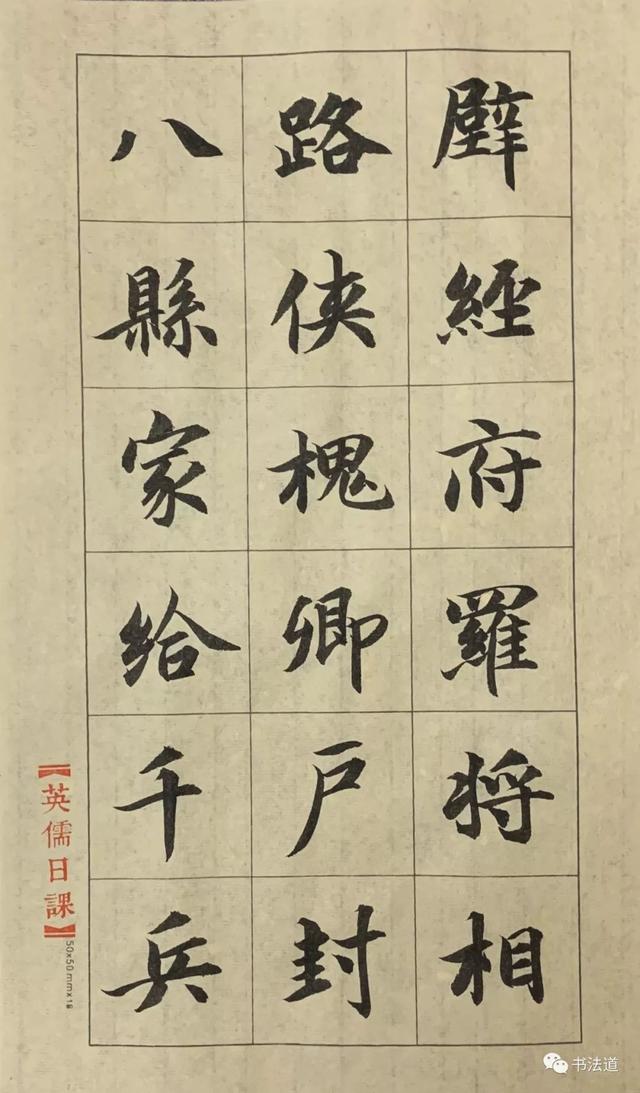 壁經府羅將相
路俠槐卿戸封
八縣家給千兵
【英儒日課】
50x50mmx18
书法道